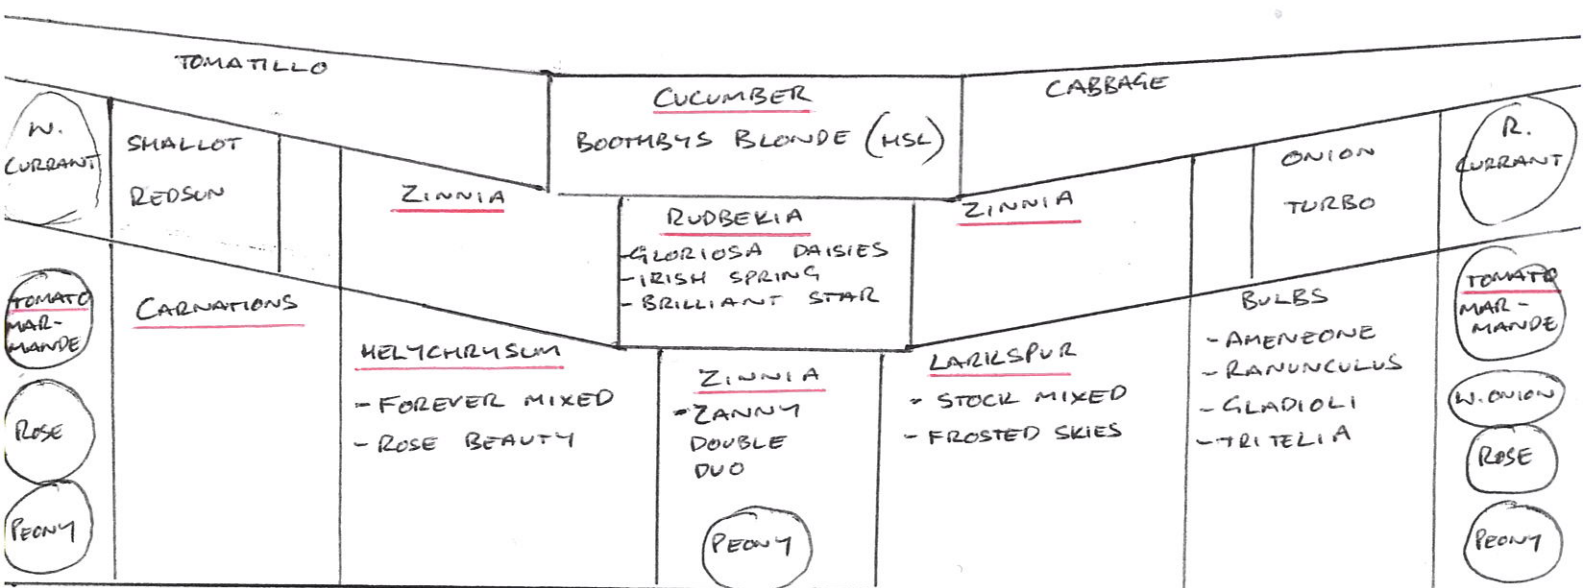 TOMATILLO
CUCUMBER
BOOTHBYS BLONDE (HSL)
CABBAGE
W.
CURRANT
SHALLOT
REDSUN
ZINNIA
RUDBEKIA
-GLORIOSA DAISIES
-IRISH SPRING
-BRILLIANT STAR
ZINNIA
ONION
TURBO
R.
CURRANT
TOMATO
MAR-
MANDE
CARNATIONS
HELYCHRYSUM
-FOREVER MIXED
-ROSE BEAUTY
ZINNIA
-ZANNY
DOUBLE
DUO
LARKSPUR
- STOCK MIXED
- FROSTED SKIES
BULBS
-AMENEONE
-RANUNCULUS
-GLADIOLI
-TRITELIA
TOMATO
MAR-
MANDE
W. ONION
ROSE
ROSE
PEONY
PEONY
PEONY